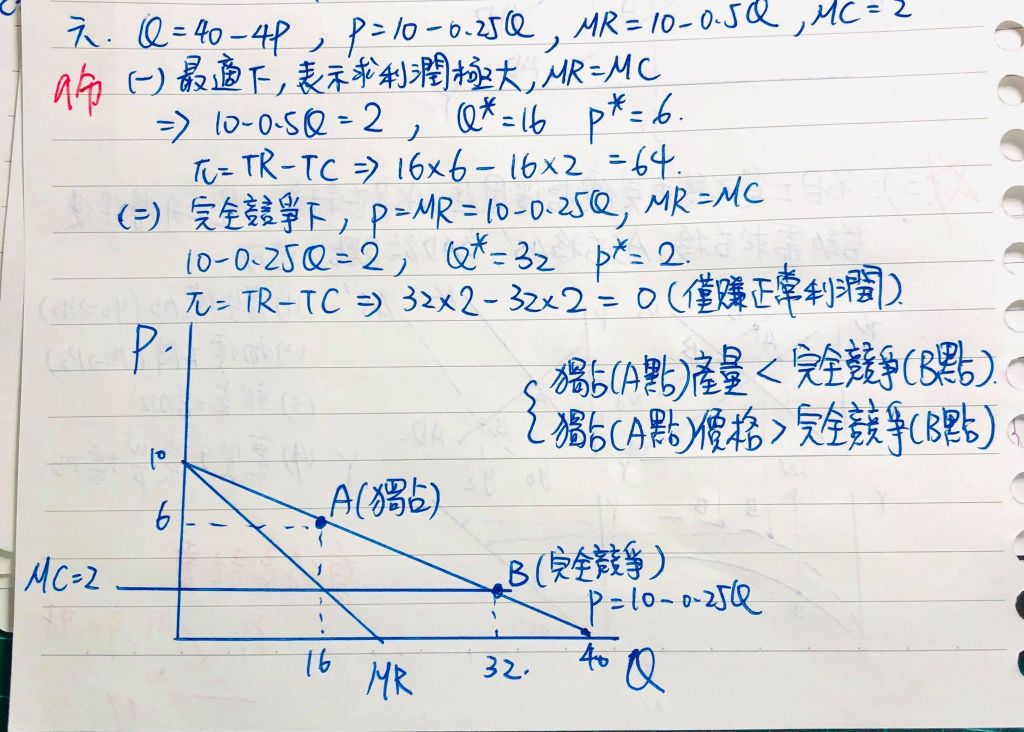 六. Q=40-4P, P=10-0.25Q, MR=10-0.5Q, MC=2
(一) 最適下,表示求利潤極大,MR=MC
=> 10-0.5Q=2, Q*=16 P*=6.
π=TR-TC => 16×6-16×2 =64.
(二) 完全競爭下, P=MR=10-0.25Q, MR=MC
10-0.25Q=2, Q*=32 P*=2.
π=TR-TC => 32×2-32×2=0(僅賺正常利潤).
P.
獨占(A點)產量<完全競爭(B點).
獨占(A點)價格>完全競爭(B點)
10
A(獨占)
6
B(完全競爭)
MC=2
P=10-0.25Q
16 MR 32. 40 Q